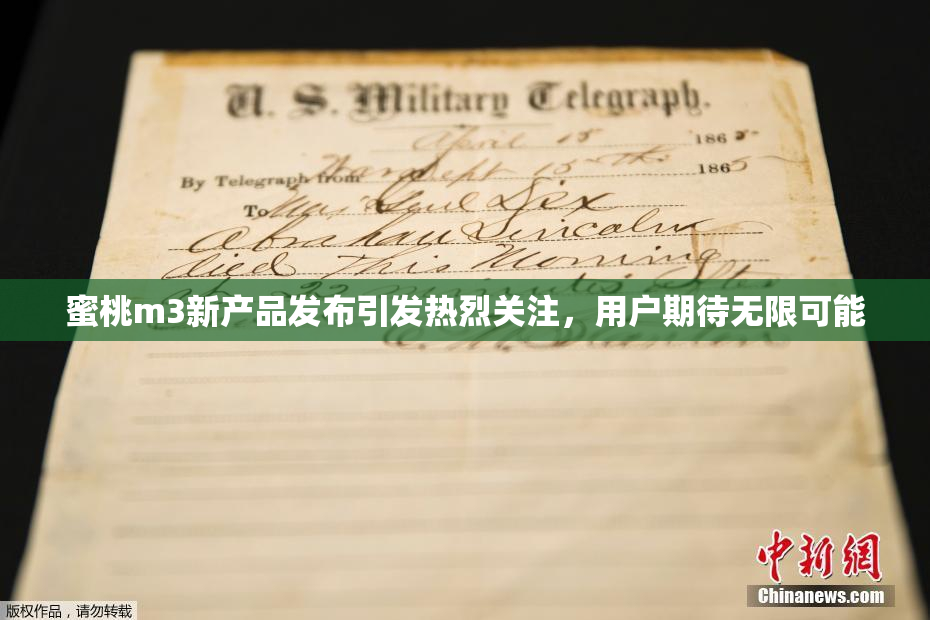 U. S. Military Telegraph.
April 15 1865
By Telegraph from War Dept 15th 1865
To Maj Genl Dix
Abraham Lincoln
died This Morning
at 22 minutes after
蜜桃m3新产品发布引发热烈关注，用户期待无限可能
E. M. Stanton
中新網
Chinanews.com
版权作品，请勿转载